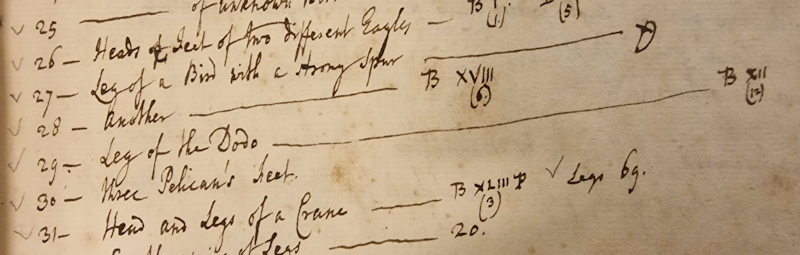 ✓ 25 —— of unknown B I. (1.) (5)
✓ 26 — Heads & Feet of two different Eagles —
✓ 27 — Leg of a Bird with a strong Spur —— D
✓ 28 — Another —— B XVIII (6.)
✓ 29 — Leg of the Dodo —— B XII (12)
✓ 30 — three Pelican's Feet.
✓ 31 — Head and Legs of a Crane —— B XLIII P (3) ✓ Legs 69.
of Legs —— 20.